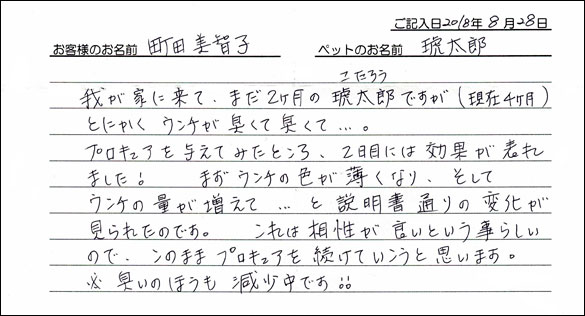 ご記入日2018年8月28日
お客様のお名前 町田美智子 ペットのお名前 琥太郎
こたろう
我が家に来て、まだ2ヶ月の琥太郎ですが(現在4ヶ月)
とにかく ウンチが臭くて臭くて…。
プロキュアを与えてみたところ、2日目には効果が表れ
ました! まずウンチの色が薄くなり、そして
ウンチの量が増えて … と説明書通りの変化が
見られたのです。 これは相性が良いという事らしい
ので、このままプロキュアを続けていこうと思います。
※臭いのほうも減少中です!!